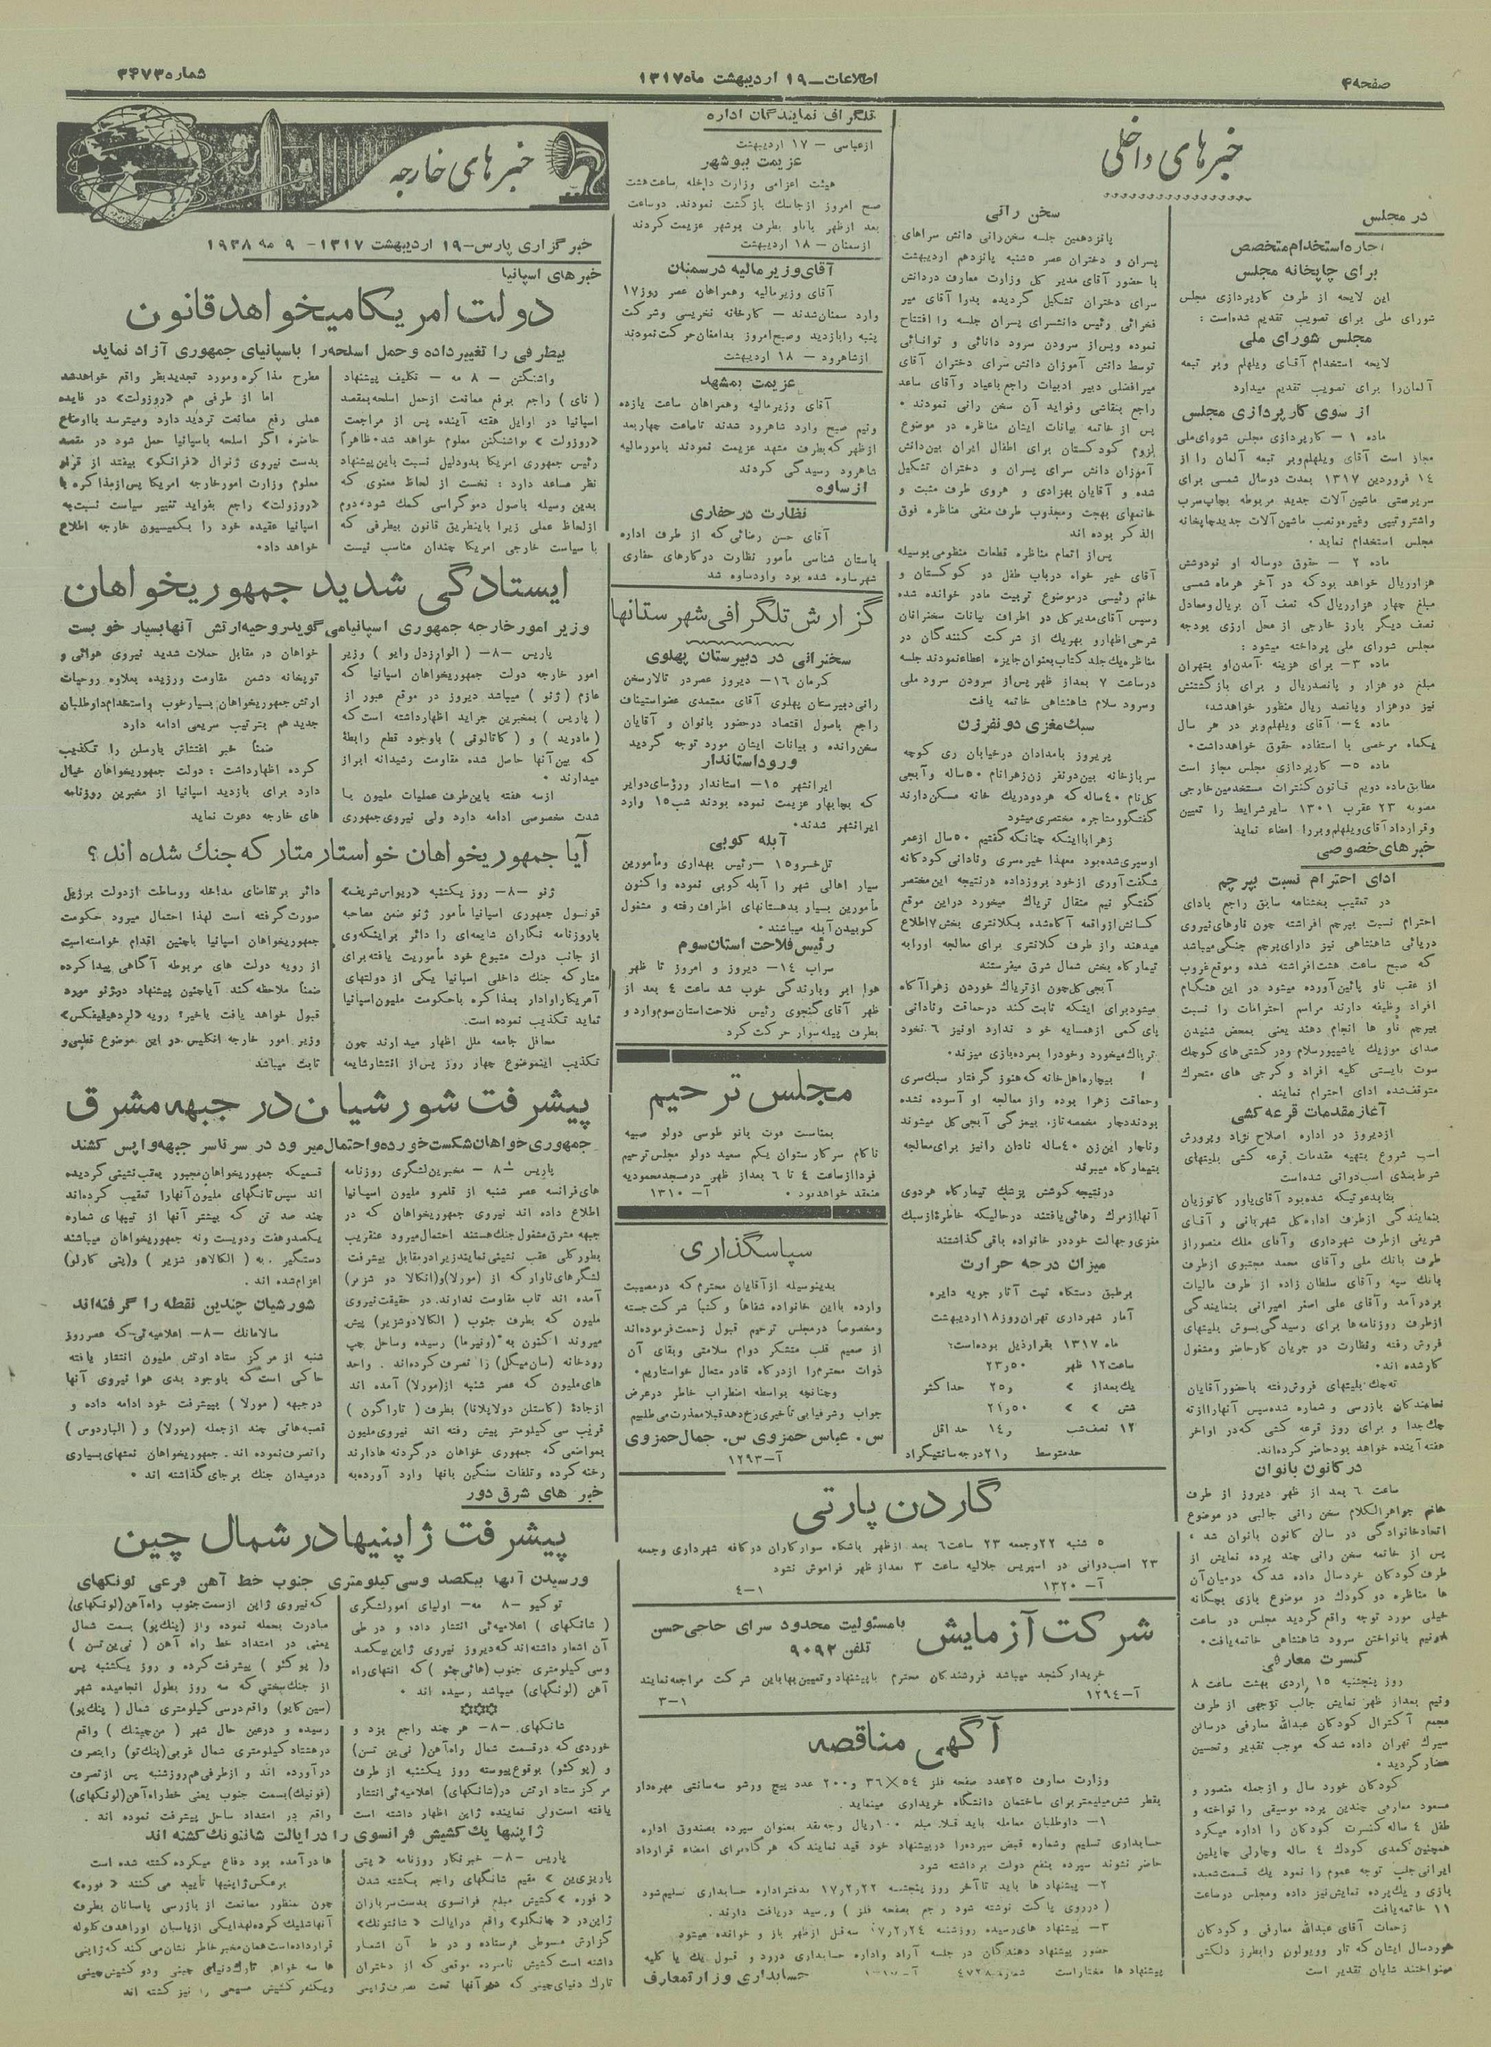 صفحه ۴
اطلاعات ـ ۱۹ اردیبهشت ماه ۱۳۱۷
شماره ۳۴۷۳
خبرهای داخلی
در مجلس
اجازه استخدام متخصص
برای چاپخانه مجلس
این لایحه از طرف کارپردازی مجلس
شورای ملی برای تصویب تقدیم شده‌است :
مجلس شورای ملی
لایحه استخدام آقای ویلهلم وبر تبعه
آلمان را برای تصویب تقدیم میدارد
از سوی کارپردازی مجلس
ماده ۱ - کارپردازی مجلس شورای ملی
مجاز است آقای ویلهلم وبر تبعه آلمان را از
۱۴ فروردین ۱۳۱۷ بمدت دو سال شمسی برای
سرپرستی ماشین آلات جدید مربوطه بچاپ سرب
مجلس استخدام نماید .
ماده ۲ - حقوق دوساله او نود و شش
هزار ریال خواهد بود که در آخر هر ماه شمسی
مبلغ چهار هزار ریال که نصف آن بریال و معادل
نصف دیگر بارز خارجی از محل ارزی بودجه
مجلس شورای ملی پرداخته میشود :
ماده ۳ - برای هزینه آمدن او بتهران
مبلغ دو هزار و پانصد ریال و برای بازگشتش
نیز دو هزار و پانصد ریال منظور خواهد شد،
ماده ۴ - آقای ویلهلم وبر در هر سال
یکماه مرخصی با استفاده حقوق خواهد داشت .
ماده ۵ - کارپردازی مجلس مجاز است
مطابق ماده دویم قانون کنترات مستخدمین خارجی
مصوبه ۲۳ عقرب ۱۳۰۱ سایر شرایط را تعیین
و قرارداد آقای ویلهلم وبر را امضاء نماید
خبرهای خصوصی
ادای احترام نسبت بپرچم
در تعقیب بخشنامه سابق راجع بادای
احترام نسبت بپرچم افراشته چون ناوهای نیروی
دریائی شاهنشاهی نیز دارای پرچم جنگی میباشد
که صبح ساعت هشت افراشته شده و موقع غروب
از عقب ناو پائین آورده میشود در این هنگام
افراد وظیفه دارند مراسم احترامات را نسبت
بپرچم ناوها انجام دهند یعنی بمحض شنیدن
صدای موزیک یا شیپور سلام و در کشتی های کوچک
سوت بایستی کلیه افراد و کرجی های متحرک
متوقف شده ادای احترام نمایند .
آغاز مقدمات قرعه کشی
از دیروز در اداره اصلاح نژاد و پرورش
اسب شروع بتهیه مقدمات قرعه کشی بلیتهای
شرط بندی اسب دوانی شده‌است
بنا بدعوتیکه شده بود آقای یاور کاتوزیان
بنمایندگی از طرف اداره کل شهربانی و آقای
شریفی از طرف شهرداری و آقای ملک منصور از
طرف بانک ملی و آقای محمد مجتبوی از طرف
بانک سپه و آقای سلطان زاده از طرف مالیات
بر درآمد و آقای علی اصغر امیرانی بنمایندگی
از طرف روزنامه‌ها برای رسیدگی بسوش بلیتهای
فروش رفته و نظارت در جریان کار حاضر و مشغول
کار شده اند .
ته چک بلیتهای فروش رفته با حضور آقایان
نمایندگان بازرسی و شماره شده سپس آنها را از ته
چک جدا و برای روز قرعه کشی که در اواخر
هفته آینده خواهد بود حاضر کرده‌اند.
در کانون بانوان
ساعت ۶ بعد از ظهر دیروز از طرف
خانم جواهر الکلام سخن رانی جالبی در موضوع
اتحاد خانوادگی در سالن کانون بانوان شد .
پس از خاتمه سخن رانی چند پرده نمایش از
طرف کودکان خردسال داده شد که درمیان آن
ها مناظره دو کودک در موضوع بازی بچگانه
خیلی مورد توجه واقع گردید مجلس در ساعت
۸ و نیم با نواختن سرود شاهنشاهی خاتمه یافت .
کنسرت معارفی
روز پنجشنبه ۱۵ اردی بهشت ساعت ۸
و نیم بعداز ظهر نمایش جالب توجهی از طرف
مجمع آکترال کودکان عبدالله معارفی در سالن
سیرک تهران داده شد که موجب تقدیر و تحسین
حضار گردید .
کودکان خورد سال و از جمله منصور و
مسعود معارفی چندین پرده موسیقی را نواخته و
طفل ۴ ساله کنسرت کودکان را اداره میکرد
همچنین کمدی کودک ۴ ساله و چارلی چاپلین
ایرانی جلب توجه عموم را نمود یک قسمت عمده
بازی و یک پرده نمایش نیز داده و مجلس در ساعت
۱۱ خاتمه یافت
زحمات آقای عبدالله معارفی و کودکان
خوردسال ایشان که تار و ویولون را بطرز دلکشی
مینواختند شایان تقدیر است
سخن رانی
پانزدهمین جلسه سخن رانی دانش سراهای
پسران و دختران عصر ۵ شنبه پانزدهم اردیبهشت
با حضور آقای مدیر کل وزارت معارف در دانش
سرای دختران تشکیل گردیده بدواً آقای میر
فخرائی رئیس دانشسرای پسران جلسه را افتتاح
نموده و پس از سرودن سرود دانائی و توانائی
توسط دانش آموزان دانش سرای دختران آقای
میر افضلی دبیر ادبیات راجع باعیاد و آقای ساعد
راجع بنقاشی و فواید آن سخن رانی نمودند .
پس از خاتمه بیانات ایشان مناظره در موضوع
لزوم کودکستان برای اطفال ایران بین دانش
آموزان دانش سرای پسران و دختران تشکیل
شده و آقایان بهزادی و هروی طرف مثبت و
خانمهای بهجت و مجذوب طرف منفی مناظره فوق
الذکر بوده اند
پس از اتمام مناظره قطعات منظومی بوسیله
آقای خیر خواه درباب طفل در کوکستان و
خانم رئیسی در موضوع تربیت مادر خوانده شده
و سپس آقای مدیر کل دو اطراف بیانات سخنرانان
شرحی اظهار و بهریک از شرکت کنندگان در
مناظره یک جلد کتاب بعنوان جایزه اعطاء نمودند جلسه
در ساعت ۷ بعداز ظهر پس از سرودن سرود ملی
و سرود سلام شاهنشاهی خاتمه یافت
سبک مغزی دو نفر زن
پریروز بامدادان در خیابان ری کوچه
سربازخانه بین دو نفر زن زهرا نام ۵۰ ساله و آبجی
گل نام ۴۰ ساله که هر دو در یک خانه مسکن دارند
گفتگو و مشاجره مختصری میشود
زهرا با اینکه چنانکه گفتیم ۵۰ سال از عمر
او سپری شده بود معهذا خیره سری و نادانی کودکانه
شگفت آوری از خود بروز داده در نتیجه این مختصر
گفتگو نیم مثقال تریاک میخورد در این موقع
کسانش از واقعه آگاه شده بکلانتری بخش ۷ اطلاع
میدهند و از طرف کلانتری برای معالجه او را به
تیمارگاه بخش شمال شرق میفرستند
آبجی گل چون از تریاک خوردن زهرا آگاه
میشود برای اینکه ثابت کند در حماقت و نادانی
پای کمی از همسایه خود ندارد او نیز ۶ نخود
تریاک میخورد و خود را بمرده بازی میزند.
بیچاره اهل خانه که هنوز گرفتار سبک سری
و حماقت زهرا بوده و از معالجه او آسوده نشده
بودند دچار مخمصه تازه بیمزگی آبجی گل میشوند
و ناچار این زن ۴۰ ساله نادان را نیز برای معالجه
بتیمارگاه میبرند
در نتیجه کوشش پزشک تیمارگاه هر دوی
آنها از مرگ رهائی یافتند در حالیکه خاطرهٔ از سبک
مغزی و جهالت خود در خانواده باقی گذاشتند
میزان درجه حرارت
بر طبق دستگاه ثبت آثار جویه دایره
آمار شهرداری تهران روز ۱۸ اردیبهشت
ماه ۱۳۱۷ بقرار ذیل بوده است :
ساعت ۱۲ ظهر ۲۳ر۵۰
یک بعداز > ۲۵ر حداکثر
شش > > ۲۱ر۵۰
۱۲ نصف شب ۱۴ر حداقل
حد متوسط ۲۱ر درجه سانتیگراد
تلگراف نمایندگان اداره
از عباسی - ۱۷ اردیبهشت
عزیمت ببوشهر
هیئت اعزامی وزارت داخله ساعت هشت
صبح امروز از جاسک بازگشت نمودند. دو ساعت
بعد از ظهر با ناو بطرف بوشهر عزیمت کردند
از سمنان - ۱۸ اردیبهشت
آقای وزیر مالیه در سمنان
آقای وزیر مالیه و همراهان عصر روز ۱۷
وارد سمنان شدند - کارخانه نخریسی و شرکت
پنبه را بازدید و صبح امروز بدامغان حرکت نمودند
از شاهرود - ۱۸ اردیبهشت
عزیمت بمشهد
آقای وزیر مالیه و همراهان ساعت یازده
و نیم صبح وارد شاهرود شدند تا ساعت چهار بعد
از ظهر که بطرف مشهد عزیمت نمودند بامور مالیه
شاهرود رسیدگی کردند
از ساوه
نظارت در حفاری
آقای حسن رضائی که از طرف اداره
باستان شناسی مأمور نظارت در کارهای حفاری
شهر ساوه شده بود وارد ساوه شد
گزارش تلگرافی شهرستانها
سخنرانی در دبیرستان پهلوی
کرمان ۱۶ - دیروز عصر در تالار سخن
رانی دبیرستان پهلوی آقای معتمدی عضو استیناف
راجع باصول اقتصاد در حضور بانوان و آقایان
سخن رانده و بیانات ایشان مورد توجه گردید
ورود استاندار
ایرانشهر ۱۵ - استاندار و رؤسای دوایر
که بچابهار عزیمت نموده بودند شب ۱۵ وارد
ایرانشهر شدند .
آبله کوبی
تل خسرو ۱۵ - رئیس بهداری و مأمورین
سیار اهالی شهر را آبله کوبی نموده و اکنون
مأمورین بسیار بدهستانهای اطراف رفته و مشغول
کوبیدن آبله میباشند .
رئیس فلاحت استان سوم
سراب ۱۴ - دیروز و امروز تا ظهر
هوا ابر و بارندگی خوب شد ساعت ۴ بعد از
ظهر آقای گنجوی رئیس فلاحت استان سوم وارد و
بطرف پیله سوار حرکت کرد
مجلس ترحیم
بمناسبت فوت بانو طوسی دولو صبیه
ناکام سرکار ستوان یکم سعید دولو مجلس ترحیم
فردا از ساعت ۴ تا ۶ بعد از ظهر در مسجد محمودیه
منعقد خواهد بود .
آ - ۱۳۱۰
سپاسگذاری
بدینوسیله از آقایان محترم که در مصیبت
وارده با این خانواده شفاهاً و کتباً شرکت جسته
و مخصوصاً در مجلس ترحیم قبول زحمت فرموده‌اند
از صمیم قلب متشکر دوام سلامتی و بقای آن
ذوات محترم را از درگاه قادر متعال خواستاریم .
و چنانچه بواسطه اضطراب خاطر در عرض
جواب و شرفیابی تأخیری رخ دهد قبلا معذرت می طلبیم
س . عباس حمزوی س . جمال حمزوی
آ - ۱۲۹۳
گاردن پارتی
۵ شنبه ۲۲ و جمعه ۲۳ ساعت ۶ بعد از ظهر باشگاه سوارکاران در کافه شهرداری و جمعه
۲۳ اسب دوانی در اسپریس جلالیه ساعت ۳ بعداز ظهر فراموش نشود
آ - ۱۳۲۰ ۱-۴
شرکت آزمایش
بامسئولیت محدود سرای حاجی حسن
تلفن ۹۰۹۲
خریدار کنجد میباشد فروشندگان محترم با پیشنهاد و تعیین بها باین شرکت مراجعه نمایند
آ - ۱۲۹۴ ۱-۳
آگهی مناقصه
وزارت معارف ۲۵ عدد صفحه فلز ۵۴×۳۶ و ۲۰۰ عدد پیچ ورشو سه سانتی مهره دار
بقطر شش میلیمتر برای ساختمان دانشگاه خریداری مینماید .
۱- داوطلبان معامله باید قبلا مبلغ ۱۰۰ ریال وجه نقد بعنوان سپرده بصندوق اداره
حسابداری تسلیم و شماره قبض سپرده را در پیشنهاد خود قید نمایند که هر گاه برای امضاء قرارداد
حاضر نشوند سپرده بنفع دولت برداشته شود
۲- پیشنهاد ها باید تا آخر روز پنجشنبه ۱۷٫۲٫۲۲ بدفتر اداره حسابداری تسلیم شود
( در روی پاکت نوشته شود راجع بصفحه فلز ) و رسید دریافت دارند .
۳- پیشنهاد های رسیده روز شنبه ۱۷٫۲٫۲۴ سه قبل از ظهر باز و خوانده میشود
حضور پیشنهاد دهندگان در جلسه آزاد و اداره حسابداری در رد و قبول یک یا کلیه
پیشنهاد ها مختار است شماره ۴۷۲۸
حسابداری وزارت معارف
خبرهای خارجه
خبرگزاری پارس - ۱۹ اردیبهشت ۱۳۱۷ - ۹ مه ۱۹۳۸
خبر های اسپانیا
دولت امریکا میخواهد قانون
بیطرفی را تغییر داده و حمل اسلحه را باسپانیای جمهوری آزاد نماید
واشنگتن - ۸ مه - تکلیف پیشنهاد
( نای ) راجع برفع ممانعت از حمل اسلحه بمقصد
اسپانیا در اوایل هفته آینده پس از مراجعت
«روزولت» بواشنگتن معلوم خواهد شد . ظاهراً
رئیس جمهوری امریکا بدو دلیل نسبت باین پیشنهاد
نظر مساعد دارد : نخست از لحاظ معنوی که
بدین وسیله باصول دموکراسی کمک شود . دوم
از لحاظ عملی زیرا باینطریق قانون بیطرفی که
با سیاست خارجی امریکا چندان مناسب نیست
مطرح مذاکره و مورد تجدید نظر واقع خواهد شد
اما از طرفی هم «روزولت» در فایده
عملی رفع ممانعت تردید دارد و میترسد با اوضاع
حاضره اگر اسلحه باسپانیا حمل شود در مقصد
بدست نیروی ژنرال «فرانکو» بیفتد از قرار
معلوم وزارت امور خارجه امریکا پس از مذاکره با
«روزولت» راجع بفواید تغییر سیاست نسبت به
اسپانیا عقیده خود را بکمیسیون خارجه اطلاع
خواهد داد.
ایستادگی شدید جمهوریخواهان
وزیر امور خارجه جمهوری اسپانیا می گوید روحیه ارتش آنها بسیار خوبست
پاریس - ۸ - ( الوارزدل وایو ) وزیر
امور خارجه دولت جمهوریخواهان اسپانیا که
عازم ( ژنو ) میباشد دیروز در موقع عبور از
( پاریس ) بمخبرین جراید اظهار داشته است که
( مادرید ) و ( کاتالونی ) باوجود قطع رابطهٔ
که بین آنها حاصل شده مقاومت رشیدانه ابراز
میدارند .
از سه هفته باین طرف عملیات ملیون با
شدت مخصوصی ادامه دارد ولی نیروی جمهوری
خواهان در مقابل حملات شدید نیروی هوائی و
توپخانه دشمن مقاومت ورزیده بعلاوه روحیات
ارتش جمهوریخواهان بسیار خوب و استخدام داوطلبان
جدید هم بترتیب سریعی ادامه دارد
ضمناً خبر اغتشاش بارسلن را تکذیب
کرده اظهار داشت : دولت جمهوریخواهان خیال
دارد برای بازدید اسپانیا از مخبرین روزنامه
های خارجه دعوت نماید
آیا جمهوریخواهان خواستار متارکه جنگ شده اند ؟
ژنو - ۸ - روز یکشنبه «ریواس شریف»
قونسول جمهوری اسپانیا مأمور ژنو ضمن مصاحبه
با روزنامه نگاران شایعه‌ای را دائر براینکه وی
از جانب دولت متبوع خود مأموریت یافته برای
متارکه جنگ داخلی اسپانیا یکی از دولتهای
آمریکا را وادار بمذاکره با حکومت ملیون اسپانیا
نماید تکذیب نموده است.
محافل جامعه ملل اظهار میدارند چون
تکذیب اینموضوع چهار روز پس از انتشار شایعه
دائر بر تقاضای مداخله و وساطت از دولت برزیل
صورت گرفته است لهذا احتمال میرود حکومت
جمهوریخواهان اسپانیا با چنین اقدام خواسته است
از رویه دولت های مربوطه آگاهی پیدا کرده
ضمناً ملاحظه کند آیا چنین پیشنهاد در ژنو مورد
قبول خواهد یافت یا خیر؟ رویه «لرد هالیفکس»
وزیر امور خارجه انگلیس در این موضوع قطعی و
ثابت میباشد
پیشرفت شورشیان در جبهه مشرق
جمهوری خواهان شکست خورده و احتمال میرود در سرتاسر جبهه واپس کشند
پاریس - ۸ - مخبرین لشگری روزنامه
های فرانسه عصر شنبه از قلمرو ملیون اسپانیا
اطلاع داده اند نیروی جمهوریخواهان که در
جبهه مشرق مشغول جنگ هستند احتمال میرود عنقریب
بطور کلی عقب نشینی نمایند زیرا در مقابل پیشرفت
لشگرهای ناوار که از (مورلا) و (انکالا دو شزیر)
آمده اند تاب مقاومت ندارند. در حقیقت نیروی
ملیون که بطرف جنوب ( الکالادوشزیر ) پیش
میروند اکنون به «ونیرما» رسیده و ساحل چپ
رودخانه (سان میگل) را تصرف کرده‌اند . واحد
های ملیون که عصر شنبه از (مورلا) آمده اند
از جادهٔ (کاستلن دولاپلانا) بطرف ( تاراگون )
قریب سی کیلومتر پیش رفته اند نیروی ملیون
بمواضعی که جمهوری خواهان در گردنه ها دارند
رخنه کرده و تلفات سنگین بآنها وارد آورده به
قسمیکه جمهوریخواهان مجبور بعقب نشینی گردیده
اند سپس تانگهای ملیون آنها را تعقیب کرده‌اند
چند صد تن که بیشتر آنها از تیپهای شماره
یکصد و هفت و دویست و نه جمهوریخواهان میباشند
دستگیر . به ( الکالاهو شزیر ) و (پتی کارلو)
اعزام شده اند .
شورشیان چندین نقطه را گرفته‌اند
سالامانک - ۸ - اعلامیه ئی که عصر روز
شنبه از مرکز ستاد ارتش ملیون انتشار یافته
حاکی است که باوجود بدی هوا نیروی آنها
در جبهه ( مورلا ) بپیشرفت خود ادامه داده و
قصبه هائی چند از جمله (مورلا) و (الباردوس)
را تصرف نموده اند . جمهوریخواهان نعشهای بسیاری
در میدان جنگ بر جای گذاشته اند .
خبر های شرق دور
پیشرفت ژاپنیها در شمال چین
و رسیدن آنها بیکصد و سی کیلومتری جنوب خط آهن فرعی لونگهای
توکیو - ۸ مه - اولیای امور لشگری
( شانگهای ) اعلامیه ئی انتشار داده و در طی
آن اشعار داشته اند که دیروز نیروی ژاپن بیکصد
و سی کیلومتری جنوب (هائی چئو ) که انتهای راه
آهن (لونگهای) میباشد رسیده اند .
شانگهای - ۸ - هر چند راجع بزد و
خوردی که در قسمت شمال راه آهن ( نی‌ین تسن)
و (پوکئو) بوقوع پیوسته روز یکشنبه از طرف
مرکز ستاد ارتش در (شانگهای) اعلامیه ئی انتشار
یافته است ولی نماینده ژاپن اظهار داشته است
که نیروی ژاپن از سمت جنوب راه آهن (لونگهای)
مبادرت بحمله نموده و از (پنک‌پو) بسمت شمال
یعنی در امتداد خط راه آهن ( نی‌ین تسن )
و ( پوکئو ) پیشرفت کرده و روز یکشنبه پس
از جنگ سختی که سه روز بطول انجامیده شهر
(سین کایو) واقع در سی کیلومتری شمال ( پنک‌پو)
رسیده و در عین حال شهر ( من‌چینک ) واقع
در هشتاد کیلومتری شمال غربی (پنک‌تو) را بتصرف
در آورده اند و از طرفی هم روز شنبه پس از تصرف
(فونیک) بسمت جنوب یعنی خط راه آهن (لونگهای)
واقع در امتداد ساحل پیشرفت نموده اند .
ژاپنیها یک کشیش فرانسوی را در ایالت شانتونک کشته اند
پاریس - ۸ - خبرنگار روزنامه « پتی
پاریزین » مقیم شانگهای راجع بکشته شدن
« فوره » کشیش مبلغ فرانسوی بدست سربازان
ژاپن در « چانگلو» واقع در ایالت « شانتونک »
گزارش مبسوطی فرستاده و در طی آن اشعار
داشته است کشیش نامبرده موقعی که از دختران
تارک دنیای چینی که در آنها تحت تصرف ژاپنی
ها در آمده بود دفاع میکرده کشته شده است
برعکس ژاپنیها تأیید می کنند « فوره»
چون بمنظور ممانعت از بازرسی پاسبانان بطرف
آنها شلیک کرده لهذا یکی از پاسبان او را هدف گلوله
قرار داده است همان مخبر خاطر نشان می کند که ژاپنی
ها سه خواهر تارک دنیای چینی و دو کشیش چینی
و یکنفر کشیش مسیحی را نیز کشته اند